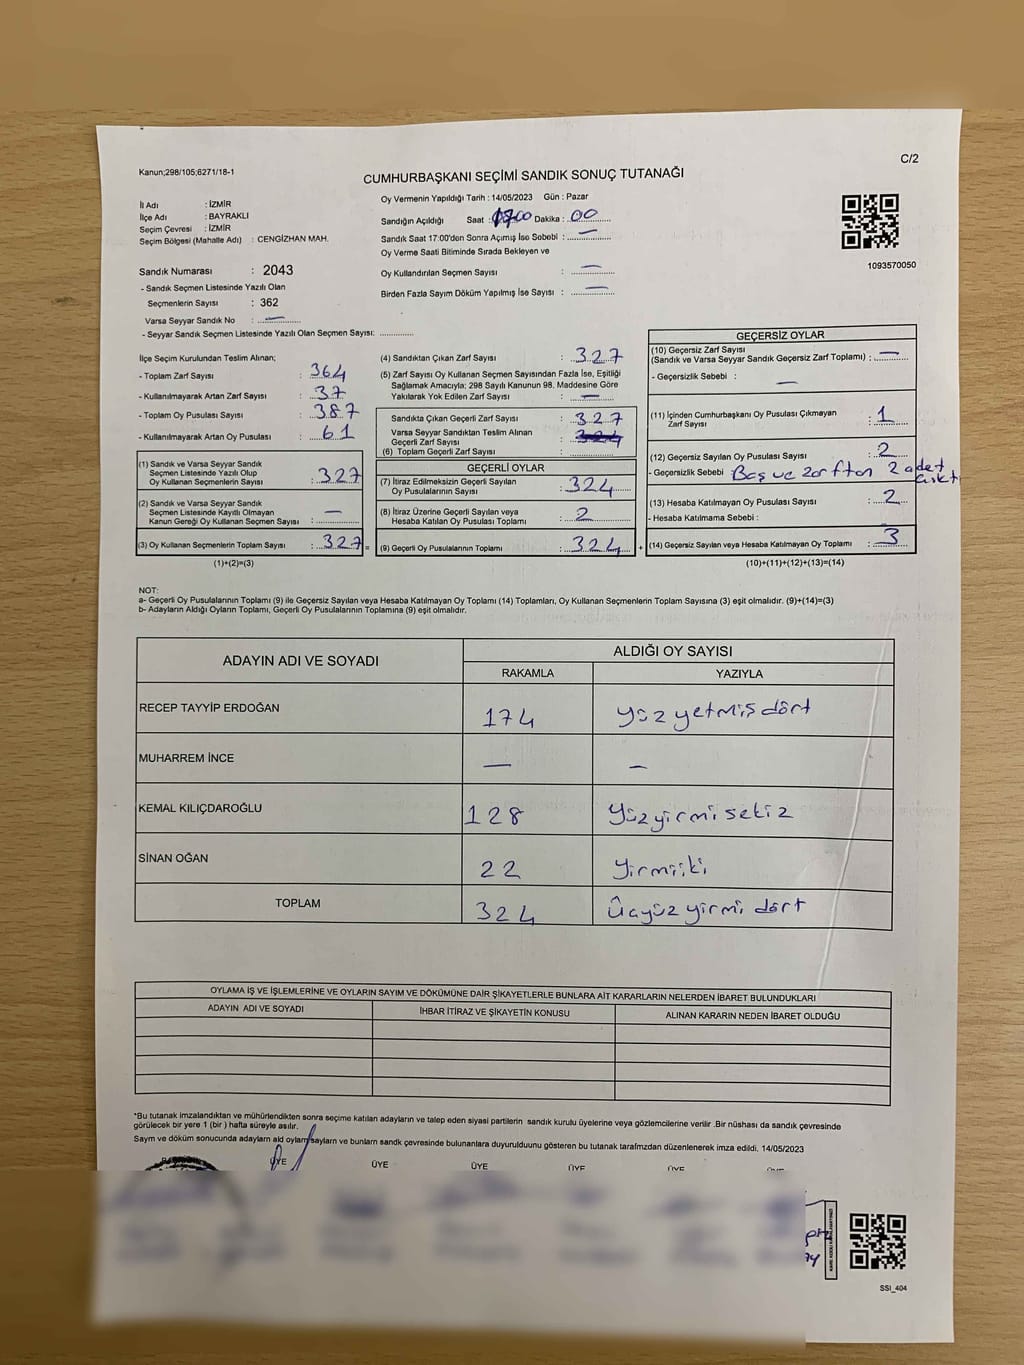 C/2
Kanun;298/105;6271/18-1
CUMHURBAŞKANI SEÇİMİ SANDIK SONUÇ TUTANAĞI
İl Adı : İZMİR
İlçe Adı : BAYRAKLI
Seçim Çevresi : İZMİR
Seçim Bölgesi (Mahalle Adı) : CENGİZHAN MAH.
Sandık Numarası : 2043
- Sandık Seçmen Listesinde Yazılı Olan
Seçmenlerin Sayısı : 362
Varsa Seyyar Sandık No : —
- Seyyar Sandık Seçmen Listesinde Yazılı Olan Seçmen Sayısı: ............
Oy Vermenin Yapıldığı Tarih : 14/05/2023 Gün : Pazar
Sandığın Açıldığı Saat : 17:00 Dakika : 00
Sandık Saat 17:00'den Sonra Açımış İse Sebebi : —
Oy Verme Saati Bitiminde Sırada Bekleyen ve
Oy Kullandırılan Seçmen Sayısı : —
Birden Fazla Sayım Döküm Yapılmış İse Sayısı : —
1093570050
İlçe Seçim Kurulundan Teslim Alınan;
- Toplam Zarf Sayısı : 364
- Kullanılmayarak Artan Zarf Sayısı : 37
- Toplam Oy Pusulası Sayısı : 387
- Kullanılmayarak Artan Oy Pusulası : 61
(1) Sandık ve Varsa Seyyar Sandık
Seçmen Listesinde Yazılı Olup
Oy Kullanan Seçmenlerin Sayısı : 327
(2) Sandık ve Varsa Seyyar Sandık
Seçmen Listesinde Kayıtlı Olmayan
Kanun Gereği Oy Kullanan Seçmen Sayısı : —
(3) Oy Kullanan Seçmenlerin Toplam Sayısı : 327 =
(1)+(2)=(3)
(4) Sandıktan Çıkan Zarf Sayısı : 327
(5) Zarf Sayısı Oy Kullanan Seçmen Sayısından Fazla İse, Eşitliği
Sağlamak Amacıyla; 298 Sayılı Kanunun 98. Maddesine Göre
Yakılarak Yok Edilen Zarf Sayısı : —
Sandıkta Çıkan Geçerli Zarf Sayısı : 327
Varsa Seyyar Sandıktan Teslim Alınan
Geçerli Zarf Sayısı :
(6) Toplam Geçerli Zarf Sayısı :
GEÇERLİ OYLAR
(7) İtiraz Edilmeksizin Geçerli Sayılan
Oy Pusulalarının Sayısı : 324
(8) İtiraz Üzerine Geçerli Sayılan veya
Hesaba Katılan Oy Pusulası Toplamı : 2
(9) Geçerli Oy Pusulalarının Toplamı : 324 +
GEÇERSİZ OYLAR
(10) Geçersiz Zarf Sayısı
(Sandık ve Varsa Seyyar Sandık Geçersiz Zarf Toplamı) : —
- Geçersizlik Sebebi : —
(11) İçinden Cumhurbaşkanı Oy Pusulası Çıkmayan
Zarf Sayısı : 1
(12) Geçersiz Sayılan Oy Pusulası Sayısı : 2
- Geçersizlik Sebebi Boş ve zarftan 2 adet
çıktı
(13) Hesaba Katılmayan Oy Pusulası Sayısı : 2
- Hesaba Katılmama Sebebi :
(14) Geçersiz Sayılan veya Hesaba Katılmayan Oy Toplamı : 3
(10)+(11)+(12)+(13)=(14)
NOT:
a- Geçerli Oy Pusulalarının Toplamı (9) ile Geçersiz Sayılan veya Hesaba Katılmayan Oy Toplamı (14) Toplamları, Oy Kullanan Seçmenlerin Toplam Sayısına (3) eşit olmalıdır. (9)+(14)=(3)
b- Adayların Aldığı Oyların Toplamı, Geçerli Oy Pusulalarının Toplamına (9) eşit olmalıdır.
ADAYIN ADI VE SOYADI ALDIĞI OY SAYISI
RAKAMLA YAZIYLA
RECEP TAYYİP ERDOĞAN 174 Yüz yetmiş dört
MUHARREM İNCE — —
KEMAL KILIÇDAROĞLU 128 Yüz yirmi sekiz
SİNAN OĞAN 22 Yirmiiki
TOPLAM 324 Üçyüz yirmi dört
OYLAMA İŞ VE İŞLEMLERİNE VE OYLARIN SAYIM VE DÖKÜMÜNE DAİR ŞİKAYETLERLE BUNLARA AİT KARARLARIN NELERDEN İBARET BULUNDUKLARI
ADAYIN ADI VE SOYADI İHBAR İTİRAZ VE ŞİKAYETİN KONUSU ALINAN KARARIN NEDEN İBARET OLDUĞU
*Bu tutanak imzalandıktan ve mühürlendikten sonra seçime katılan adayların ve talep eden siyasi partilerin sandık kurulu üyelerine veya gözlemcilerine verilir .Bir nüshası da sandık çevresinde
görülecek bir yere 1 (bir ) hafta süreyle asılır.
Sayım ve döküm sonucunda adayların ald oyların saylarn ve bunların sandk çevresinde bulunanlara duyurulduunu gösteren bu tutanak tarafmzdan düzenlenerek imza edildi. 14/05/2023
ÜYE ÜYE ÜYE ÜYE ÜYE
SSI_404